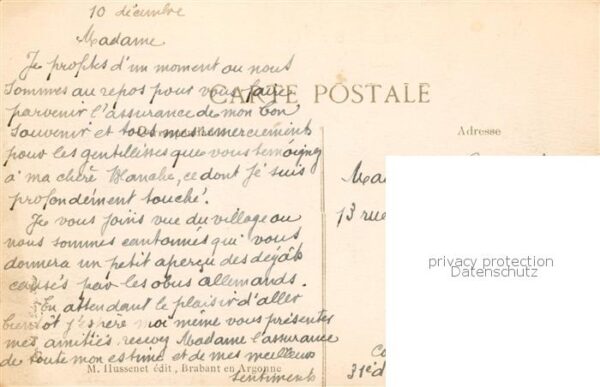 10 décembre
Madame
Je profite d'un moment ou nous
sommes au repos pour vous faire
parvenir l'assurance de mon bon
CARTE POSTALE
souvenir et tous mes remerciements
Adresse
pour les gentillesses que vous témoignez
à ma chère Blanche, ce dont je suis
profondément touché.
Je vous joins vue du village ou
nous sommes cantonnés qui vous
donnera un petit aperçu des dégâts
causés par les obus allemands.
En attendant le plaisir d'aller
bientôt j'espère moi même vous présenter
mes amitiés recevez Madame l'assurance
de toute mon estime et de mes meilleurs
sentiments
M. Hussenet édit, Brabant en Argonne
Mad
13 rue
Co
31e d
privacy protection
Datenschutz